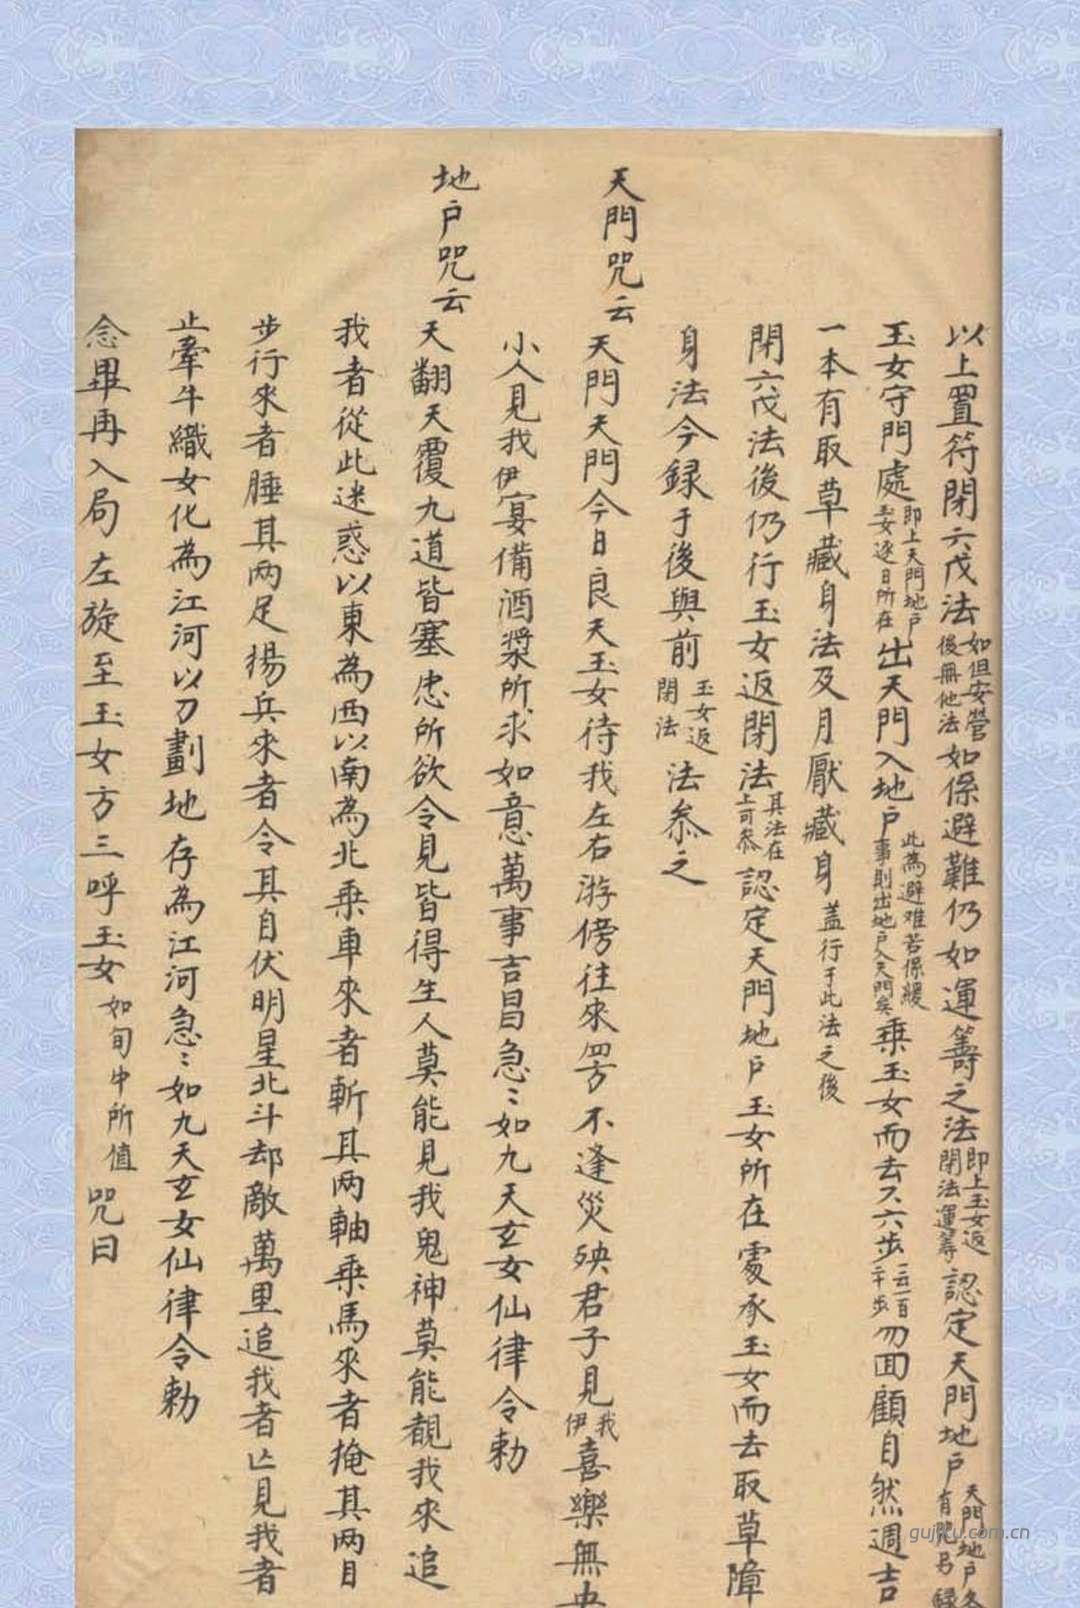 以上置符閉六戊法如但安營後無他法如係避難仍如運籌之法即上玉女返閉法運籌認定天門地戶天門地戶各有咒另錄
玉女守門處即上天門地戶玉女逐日所在出天門入地戶此為避难若係緩事則出地戶入天門矣乗玉女而去六六步一云一百二十步勿囬顧自然遇吉
一本有取草藏身法及月厭藏身蓋行于此法之後
閉六戊法後仍行玉女返閉法其法在上可叅認定天門地戶玉女所在處承玉女而去取草障
身法今録于後與前玉女返閉法法叅之
天門咒云 天門天門今日良天玉女待我左右游傍往來㓁不逢災殃君子見我伊喜樂無央
小人見我伊宴備酒漿所求如意萬事吉昌急〻如九天玄女仙律令勅
地戶咒云 天翻天覆九道皆塞忠所欲令見皆得生人莫能見我鬼神莫能覩我來追
我者從此迷惑以東為西以南為北乗車來者斬其两軸乗馬來者掩其两目
步行來者腄其两足揚兵來者令其自伏明星北斗却敵萬里追我者亾見我者
止牽牛織女化為江河以刀劃地存為江河急〻如九天玄女仙律令勅
念畢再入局左旋至玉女方三呼玉女如旬中所值咒曰
gujiku.com.cn